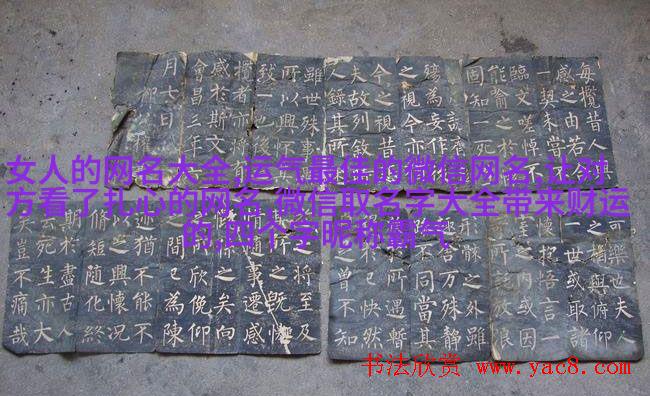 每攬昔人
感之由若
一契未嘗
臨文嗟悼不
能喻之
固知一死
殤為妄作
之視今
今之視昔
夫故列
人錄其所
雖世殊事
所以興懷
致一也後
攬者亦將
感於斯文
會昌三年
月七日
女人的网名大全,运气最佳的微信网名,让对
方看了扎心的网名,微信取名字大全带来财运
的,四个字昵称霸气
可樂也夫人
之相與俯仰
一世或取諸
懷抱悟言一
內或因
所託放浪
形骸之外雖
趣舍萬殊靜
不同當其
所遇暫
己快然
曾不知
之將至及
之既
隨事遷感
係之矣向
之所欣俛仰
之間以為陳
迹猶不能不
以之興懷況
脩短隨化終
期於盡古人
云死生亦大
矣豈不痛哉
书法欣赏 www.yac8.com